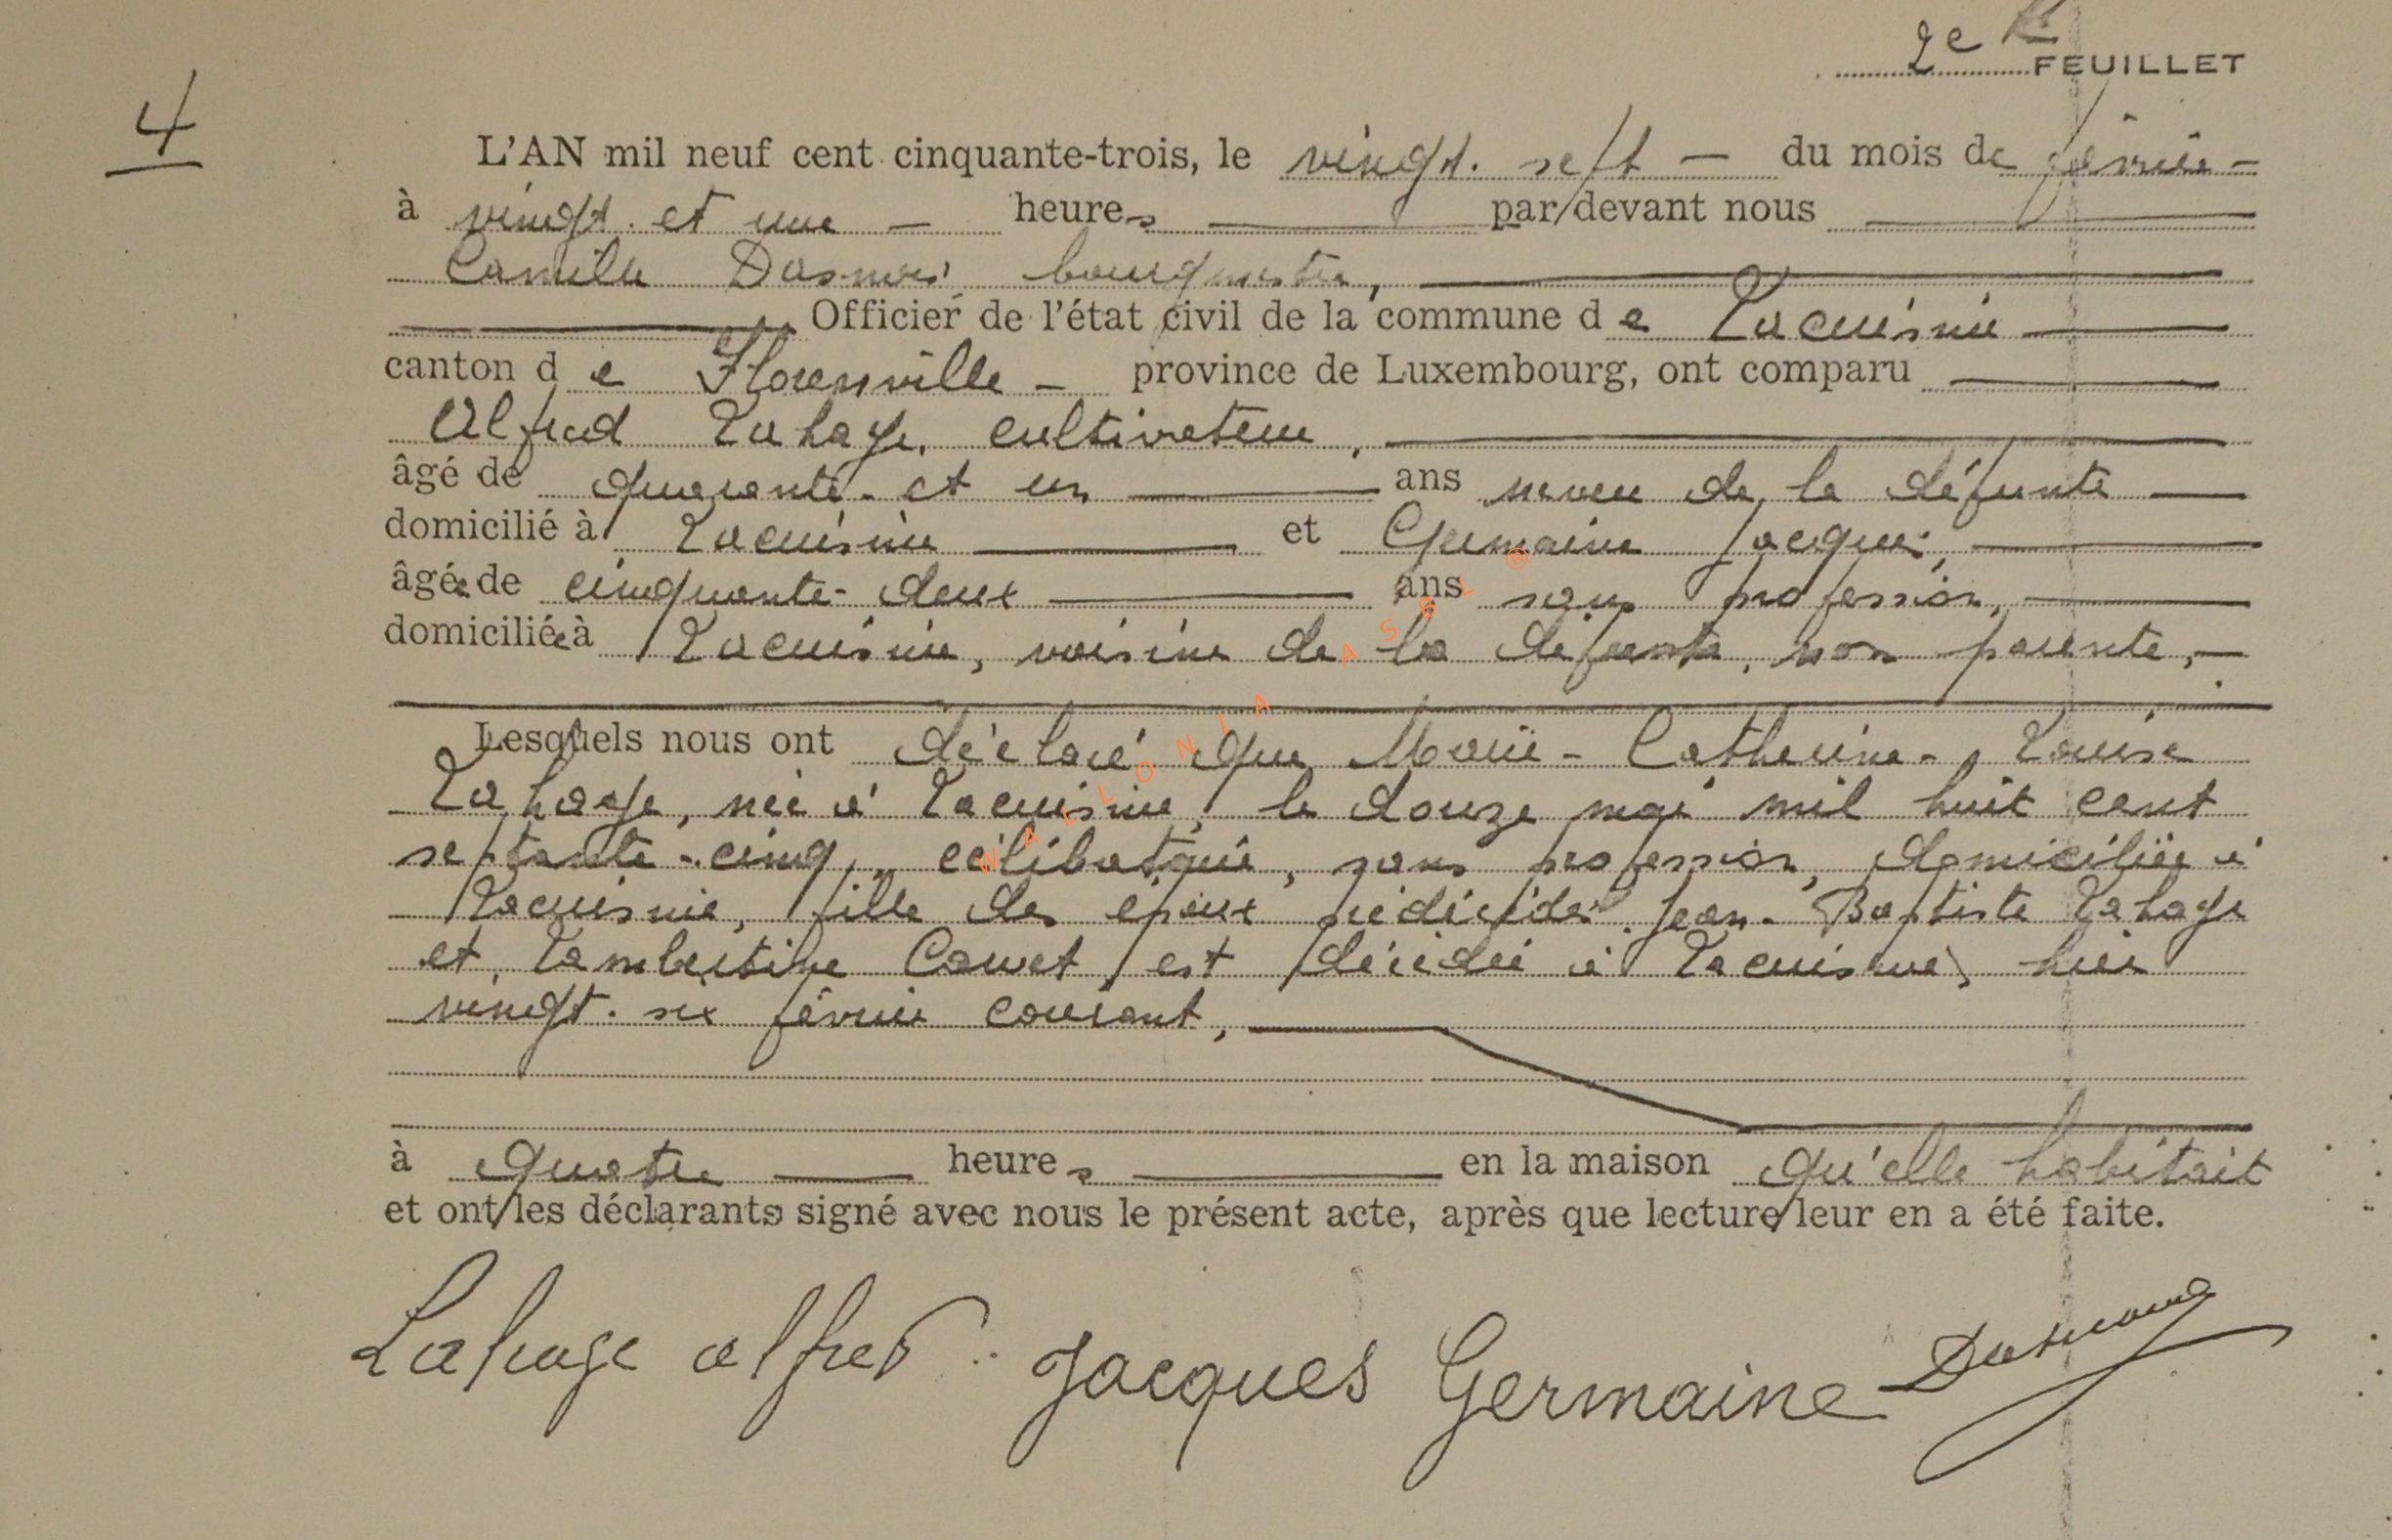 2e FEUILLET
4
L'AN mil neuf cent cinquante-trois, le vingt-sept — du mois de février —
à vingt et une — heures — par devant nous —
Camille bourgmestre, —
— Officier de l'état civil de la commune de Lacuisine —
canton de Florenville — province de Luxembourg, ont comparu —
Alfred Lahage, cultivateur, —
âgé de quarante et un — ans neveu de la défunte —
domicilié à Lacuisine — et Germaine Jacques, —
âgée de cinquante-deux — ans sans profession, —
domiciliée à Lacuisine, voisine de la défunte, non parente, —
Lesquels nous ont déclaré que Marie-Catherine-Louise
Lahage, née à Lacuisine, le douze mai mil huit cent
septante-cinq, célibataire, sans profession, domiciliée à
Lacuisine, fille des époux prédécédés Jean-Baptiste Lahage
et Lambertine Cawet, est décédée à Lacuisine, hier
vingt-six février courant, —
à quatre — heures — en la maison qu'elle habitait
et ont les déclarants signé avec nous le présent acte, après que lecture leur en a été faite.
Lahage alfred Jacques Germaine
WALLONIA ASBL ®